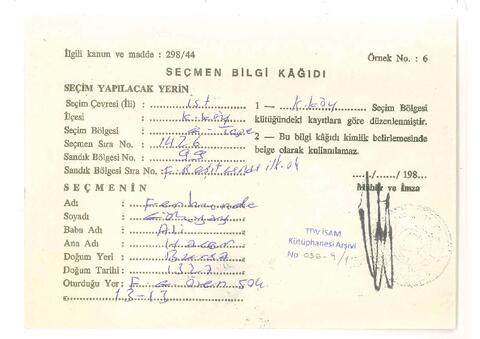 İlgili kanun ve madde : 298/44
Örnek No. : 6
SEÇMEN BİLGİ KÂĞIDI
SEÇİM YAPILACAK YERİN
Seçim Çevresi (İli) : ist
İlçesi : K. köy
Seçim Bölgesi :
Seçmen Sıra No. : 1426
Sandık Bölgesi No. : 99
Sandık Bölgesi Sıra No. :
1 — K.köy Seçim Bölgesi
kütüğündeki kayıtlara göre düzenlenmiştir.
2 — Bu bilgi kâğıdı kimlik belirlemesinde
belge olarak kullanılamaz.
.../....../ 198...
Mühür ve İmza
SEÇMENİN
Adı : Ferhunde
Soyadı :
Baba Adı : Ali
Ana Adı : Hacer
Doğum Yeri : Bursa
Doğum Tarihi : 132
Oturduğu Yer :
13-13
TDV İSAM
Kütüphanesi Arşivi
No 03G-9/